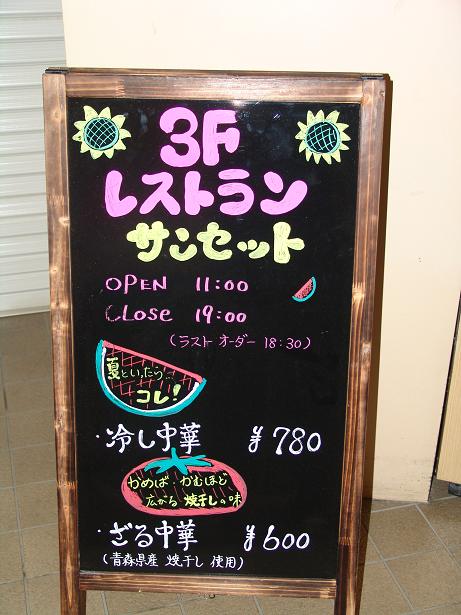 3F
レストラン
サンセット
OPEN 11:00
CLOSE 19:00
(ラスト オーダー 18:30)
夏といったら
コレ!
・冷し中華 ¥780
かめば かむほど
広がる 焼干しの味
・ざる中華 ¥600
(青森県産 焼干し 使用)